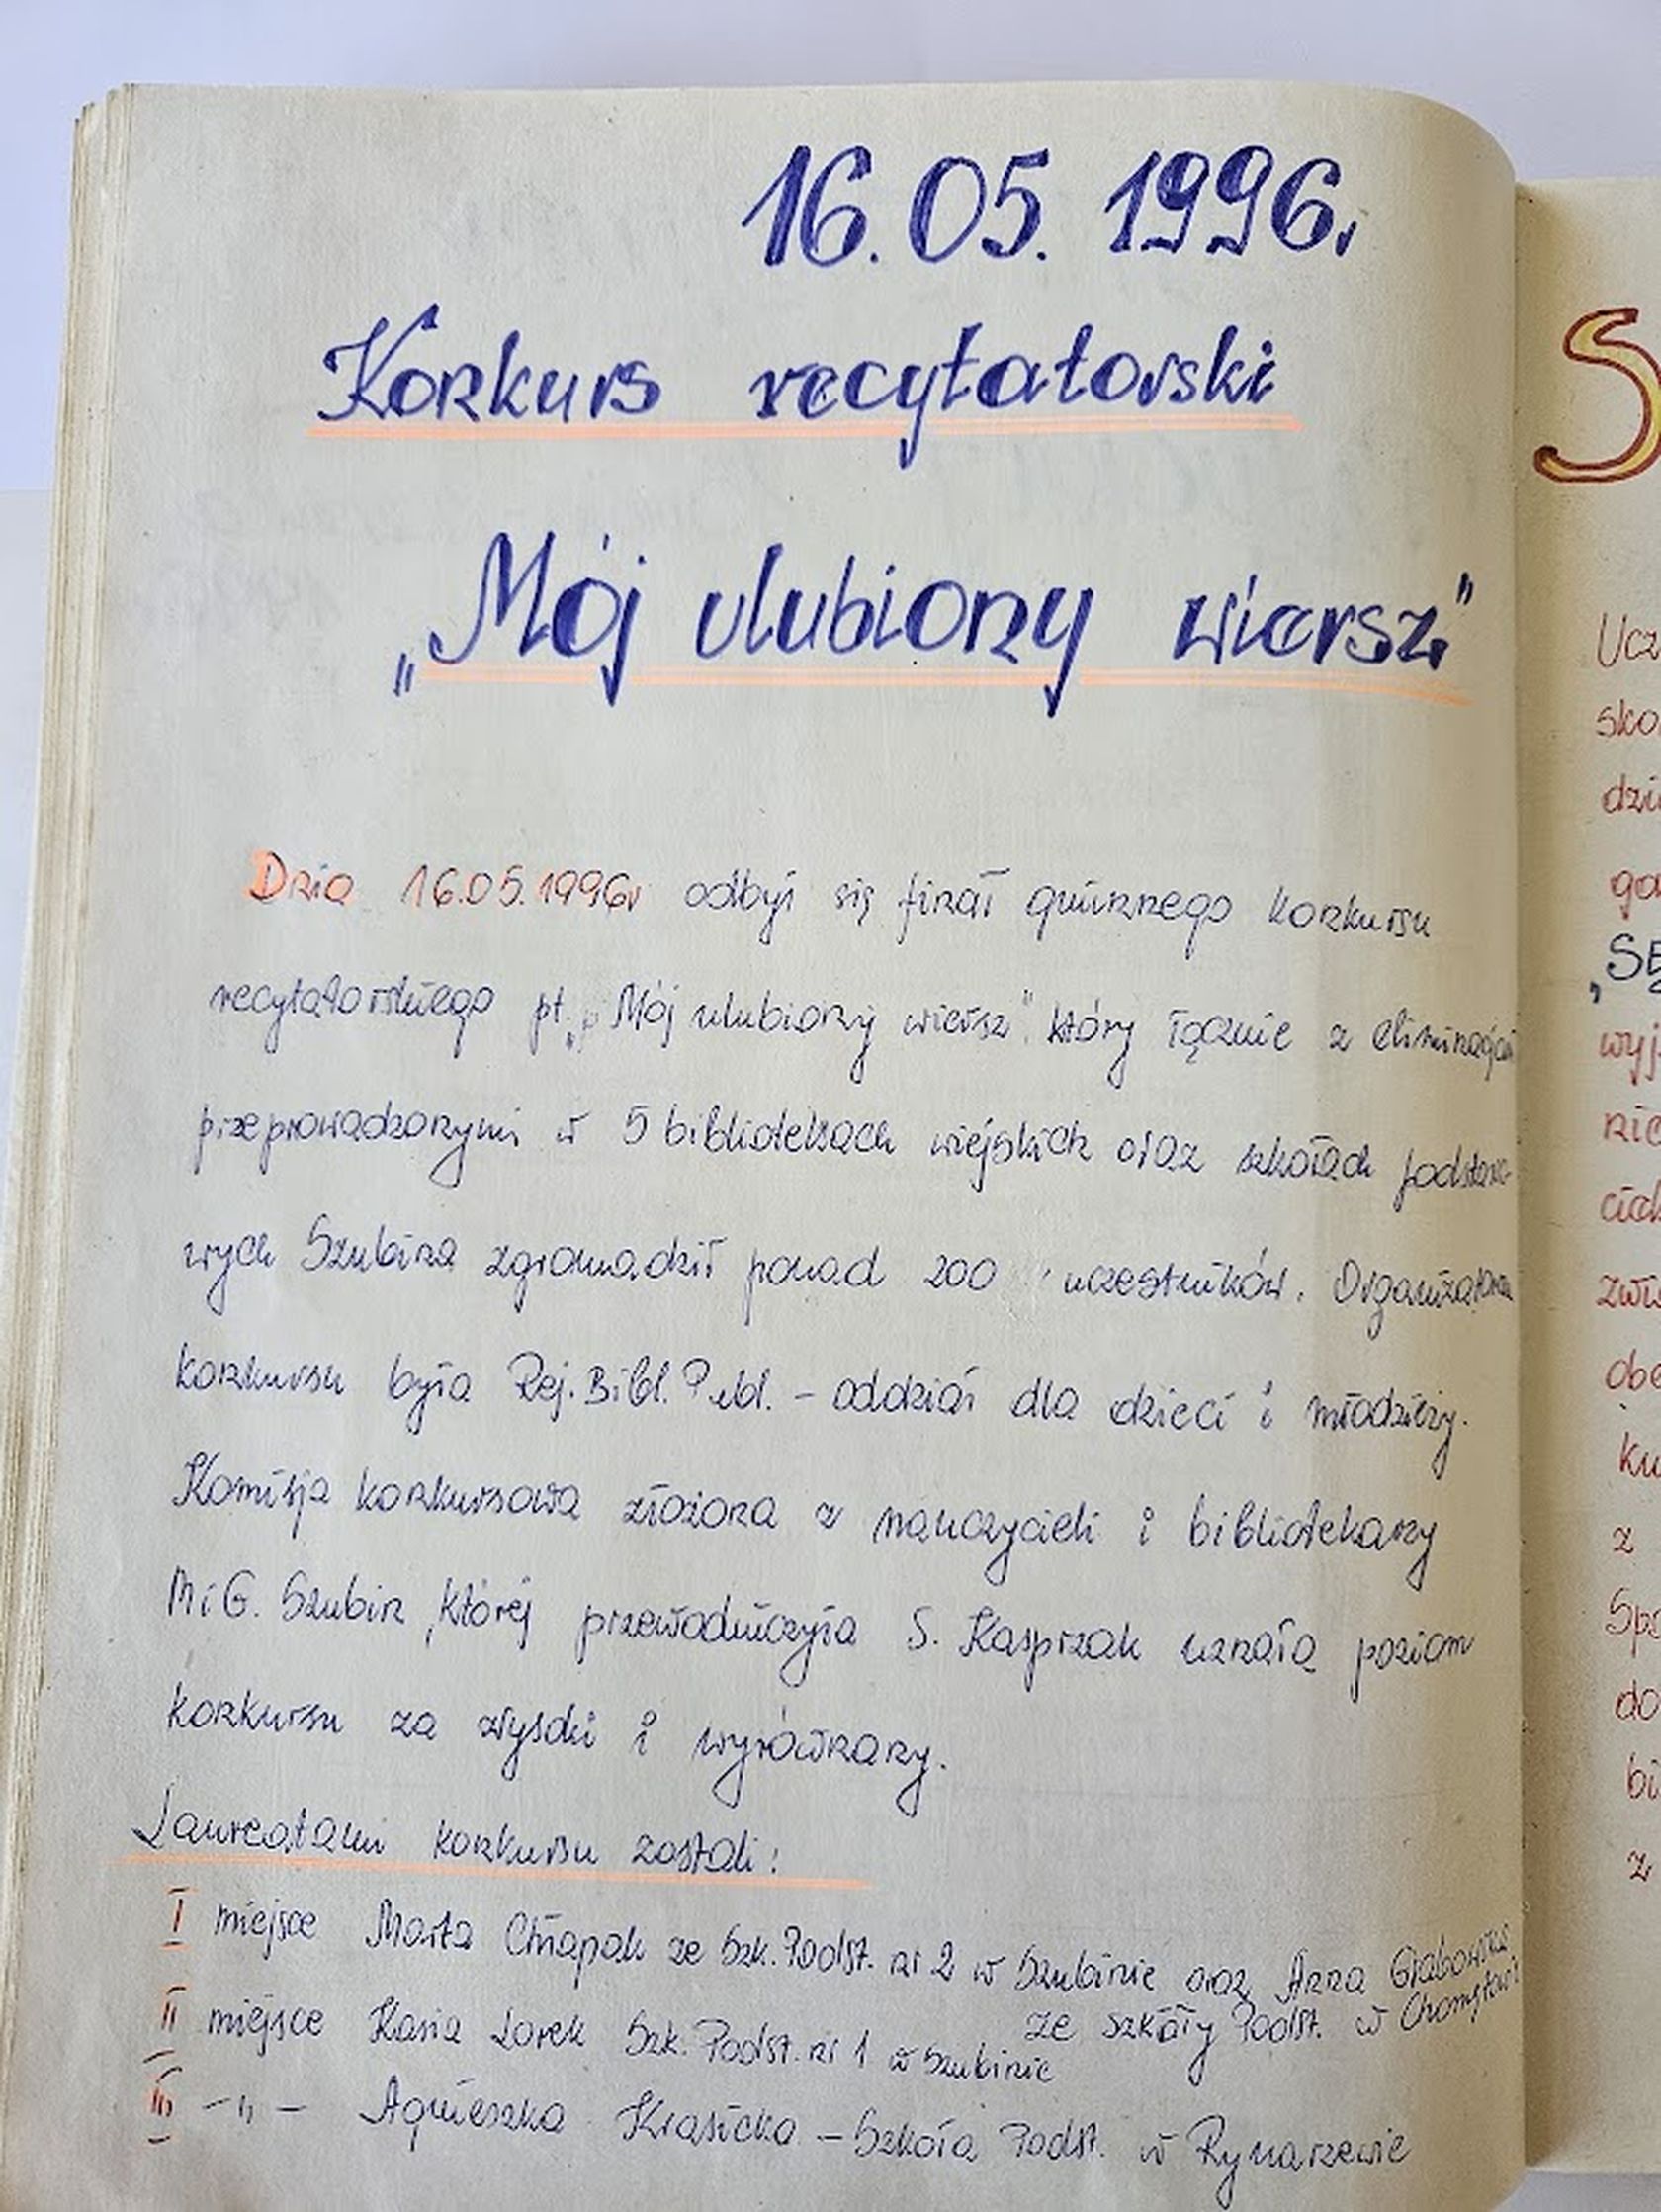 16.05.1996r
Konkurs recytatorski
„Mój ulubiony wiersz"
Dnia 16.05.1996r odbył się finał gminnego konkursu
recytatorskiego pt. „Mój ulubiony wiersz", który łącznie z eliminacjami
przeprowadzonymi w 5 bibliotekach wiejskich oraz szkołach podstawo-
wych Szubina zgromadził ponad 200 uczestników. Organizatorem
konkursu była Rej. Bibl. Publ. – oddział dla dzieci i młodzieży.
Komisja konkursowa złożona z nauczycieli i bibliotekarzy
MiG. Szubin, której przewodniczyła S. Kasprzak uznała poziom
konkursu za wysoki i wyrównany.
Laureatami konkursu zostali:
I miejsce Marta Chłapak ze Szk. Podst. nr 2 w Szubinie oraz Anna Grabowska
ze szkoły Podst. w
II miejsce Kasia Lorek Szk. Podst. nr 1 w Szubinie
III –„– Agnieszka Krasicka – Szkoła Podst. w Rynarzewie
S
Ucz
sko
dzi
ga
„SĘ
wyj
nic
ciel
zwi
obe
ku
z
Spo
do
bi
z